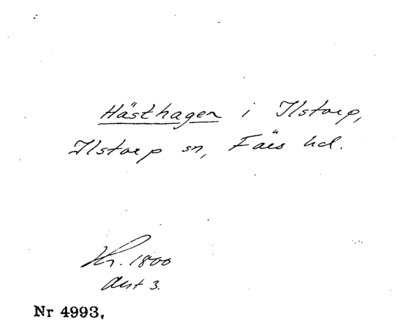 Hästhagen i Ilstorp,
Ilstorp sn, Färs hd.
Kr. 1800
Akt 3.
Nr 4993.